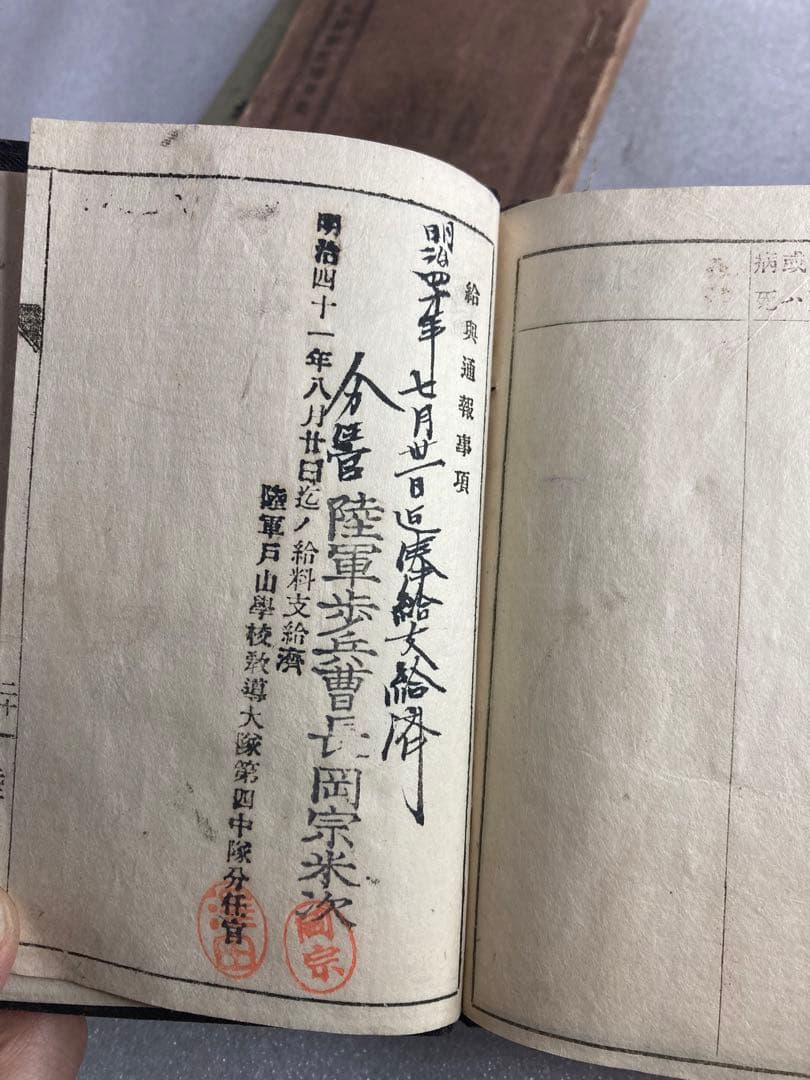 或ハ
病死
給與通報事項
明治四十年七月卅一日迄俸給支給済
分營 陸軍歩兵曹長岡宗米次
岡宗
明治四十一年八月廿日迄ノ給料支給濟
陸軍戸山學校教導大隊第四中隊分任官
二十一